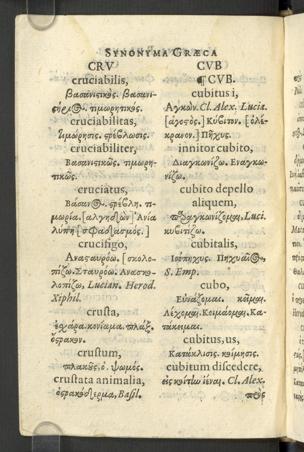 SYNONYMA GRÆCA
CRV
cruciabilis,
βασανιστικὸς. βασανι-
τιμωρητικός.
cruciabilitas,
τιμωρησις. στρέβλωσις.
cruciabiliter,
Βασανιστικῶς. τιμωρη-
τικῶς.
cruciatus,
Βάσανος. στρέβλη. τι-
μωρία. [αλγηδὼν] Ἀνία
λύπη [σφαδασμος.]
crucifigo,
Ανασαυρόω. [σκολο-
πίζω. Σταυρόω. Ανασκο-
λοπίζω, Lucian. Herod.
Xiphil.
crusta,
ἐσχάρα. κονίαμα. πλάξ.
ὄστρακον.
crustum,
πλακοῦς, ὁ. ψωμός.
crustata animalia,
ὀστρακόδερμα, Basil.
CVB
¶ CVB.
cubitus i,
Αγκών. Cl. Alex. Lucia.
[ἀγοστὸς.] Κύβιτον. [ὀλέ-
κρανον.] Πῆχυς.
innitor cubito,
Διαγκωνίζω. Εναγκω-
νίζω.
cubito depello
aliquem,
Παραγκωνίζομαι. Luci.
κυβιτίζω.
cubitalis,
Ισόπηχυς. Πηχυαῖος,
S. Emp.
cubo,
Εὐνάζομαι. κεῖμαι.
Λέχομαι. Κοιμάομαι. Κα-
τάκειμαι.
cubitus, us,
Κατάκλισις. κοίμησις.
cubitum discedere,
εἰς κοίτην ἰέναι. Cl. Alex.
πρὸς